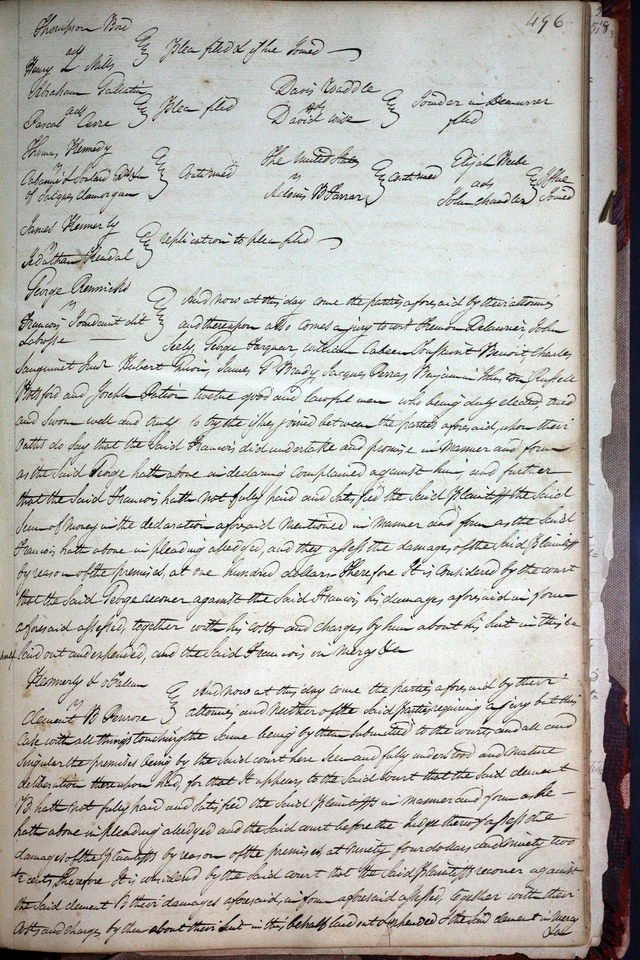 496
Thompson Bird
ads
Henry L Mills
Plea filed & issue Joined
Abraham Gallatin
ads
Pascal Cerre
Plea filed
Davis Waddle
ads
David wise
Joinder in Demurrer
filed
Thomas Kennedy
v
Cabanne & Soulard
of Jacques Clamorgan
Continued
The United States
v
Adonis B Farrar
Continued
Elijah
ads
John Chandler
Issue
Joined
James Kennerly
v
replication to plea filed
George Rennicks
v
Francois dit
Labosse
And now at this day come the parties aforesaid by their attornies
and thereupon also comes a jury to wit John
George William Cabeen Toussaint Benoit Charles
Sanguinet Junr Hubert Guion, James G Brady Jacques Benjamin Russell
ford and Joseph twelve good and lawful men who being duly elected, tried
and Sworn well and truly to try the issue joined between the parties aforesaid, upon their
Oaths do say that the said Francois did undertake and promise in Manner and form
as the said George hath above in declaring complained against him, and further
that the Said Francois hath Not fully paid and satisfied the said Plaintiff the said
Sum of Money in the declaration aforesaid mentioned in manner and form as the said
Francois hath above in pleading alledged, and they assess the damages of the said Plaintiff
by reason of the premises, at one hundred dollars Therefore It is Considered by the court
that the Said George recover against the said Francois his damages aforesaid in form
aforesaid assessed, together with his costs and charges by him about his Suit in this be
half laid out and expended, and the said Francois in mercy &c
Kennerly & ofallan
v
Clement B Penrose
And now at this day come the parties aforesaid by their
attornies and neither of the said parties requiring a jury but this
Case with all things touching the same being by them submitted to the court, and all and
Singular the premises being by the said court here Seen and fully understood and mature
deliberation thereupon had, for that It appears to the said court that the said Clement
B hath not fully paid and satisfied the said Plaintiffs in manner and form as he
hath above in pleading alledged and the said court before the Judge thereof assess the
damages of the Plaintiffs by reason of the premises at Ninety four dollars and ninety two
cents Therefore It is considered by the said court that the said Plaintiffs recover against
the said Clement B their damages aforesaid, in form aforesaid assessed, together with their
Costs and charges by them about their Suit in this behalf laid out & expended & the said Clement in mercy
&c